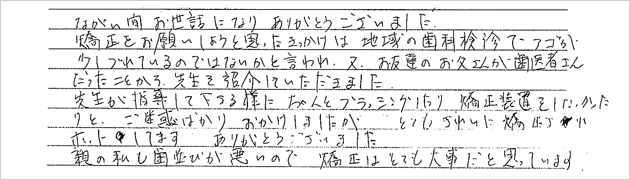 ながい間 お世話になり ありがとうございました。
矯正をお願いしようと思ったきっかけは 地域の歯科検診でアゴが
少しづれているのではないかと言われ、又、お友達のお父さんが歯医者さん
だったことから、先生を紹介していただきました。
先生が指導して下さる様に ちゃんとブラッシングしたり 矯正装置をしなかった
りと、ご迷惑ばかり おかけしましたが とてもきれいに矯正でき
ホッとしてます ありがとうございました
親の私も歯並びが悪いので 矯正はとても大事だと思っています